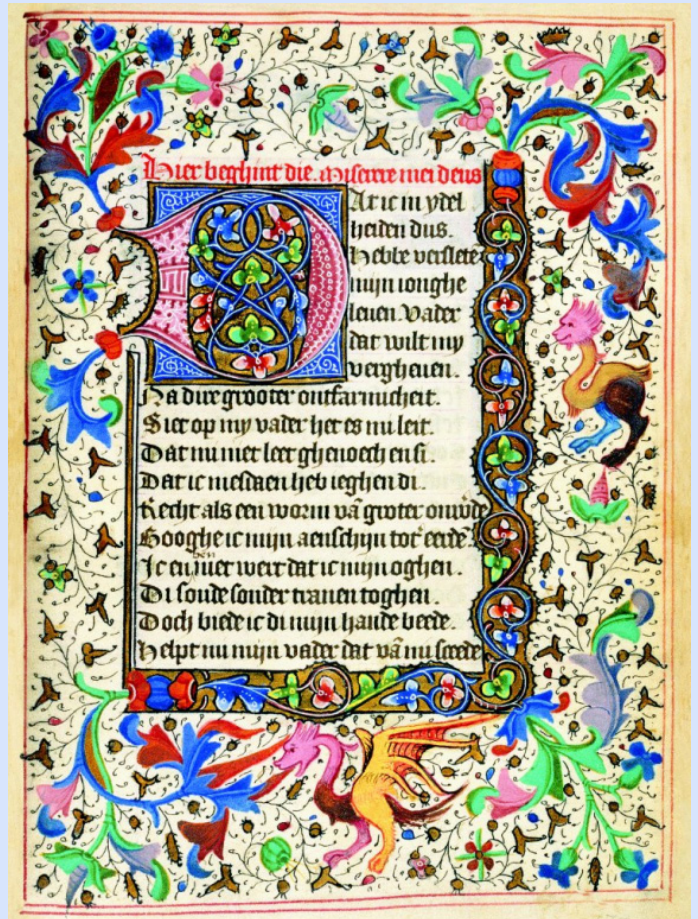 Hier beghint die miserere mei deus
Dat ic in ydel
heiden dus.
Hebbe verslete
mijn ionghe
leuen Vader
dat wilt my
vergheuen.
Na dire grooter ontfarmicheit.
Siet op my vader het es mi leit.
Dat nu niet leet ghenoech en si.
Dat ic mesdaen heb ieghen di.
Recht als een worm vā groter
Booghe ic mijn aenschijn tot eerde
Ic en ben niet wert dat ic mijn oghen.
Di soude sonder tranen toghen.
Doch biede ic di mijn hande beede.
Helpt mi mijn vader dat vā mi sceede